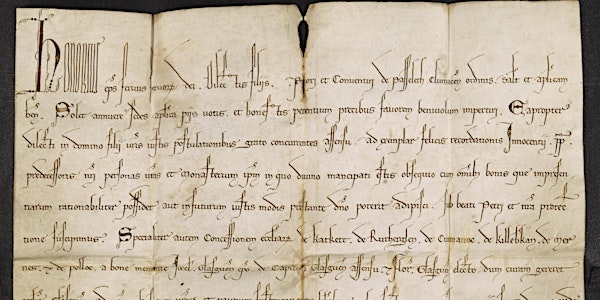 honorius
eps seruus seruoz dei. Dilectis filijs. Priori et Conuentui de Passeleth Cluniacen ordinis. salt et aplicam
ben. Solet annuere sedes aplica pijs uotis. et honestis petentium precibus fauorem beniuolum impertiri. Eapropter
dilecti in domino filij uris iustis postulationibus grato concurrentes assensu. ad exemplar felicis recordationis Innocentij. pp.
predecessoris nri personas uras et monasterium ipm in quo diuino mancipati estis obsequio cum omib bonis que impresen
tiarum rationabiliter possidet aut infuturum iustis modis prestante dno poterit adipisci. sub beati Petri et nra protec
tione suscipimus. Specialiter autem Concessionem eccliaz de katkert. de Ruthenglen. de Cumanoc. de killebkan. de mer
nes. et de polloc. a bone memorie Jocel. Glasguen epo. de Capituli Glasguen assensu et flor. Glasguen electo. dum curam gereret